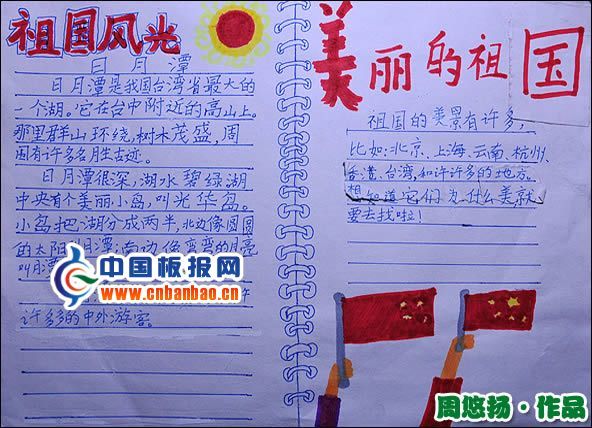 祖国风光
日月潭
日月潭是我国台湾省最大的
一个湖。它在台中附近的高山上。
那里群山环绕,树木茂盛,周
围有许多名胜古迹。
日月潭很深,湖水碧绿湖
中央有个美丽小岛,叫光华岛。
小岛把湖分成两半,北边像圆圆
的太阳 月潭;南边像弯弯的月亮
叫月
许多的中外游客。
中国板报网
www.cnbanbao.cn
美丽的祖国
祖国的美景有许多,
比如:北京、上海、云南、杭州、
香港、台湾,和许许多的地方。
想知道它们为什么美就
要去找啦!
周悠扬·作品